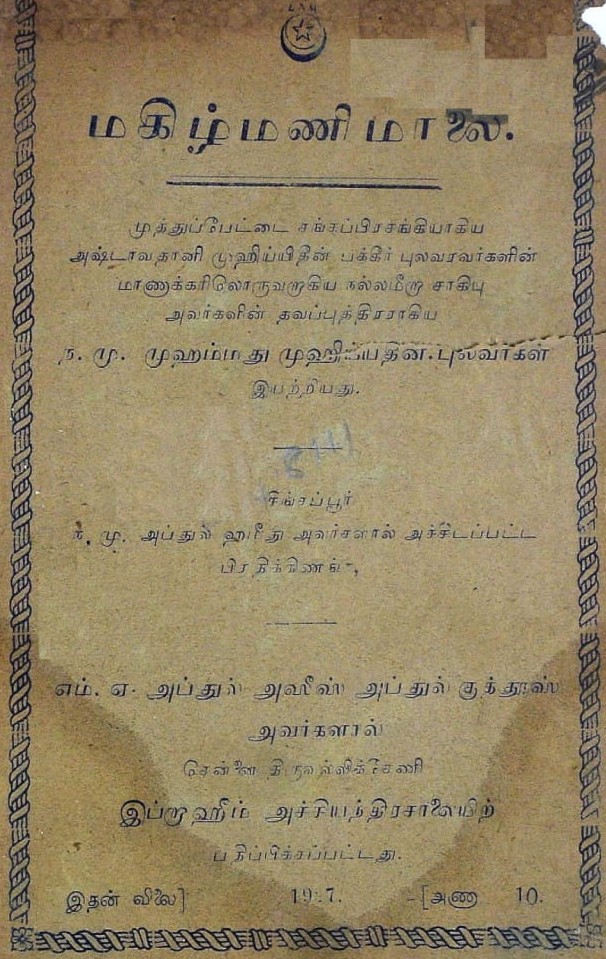 ௭௮௬
மகிழ்மணிமாலை.
முத்துப்பேட்டை சங்கப்பிரசங்கியாகிய
அஷ்டாவதானி முஹிய்யிதீன் பக்கீர் புலவரவர்களின்
மாணாக்கரிலொருவராகிய நல்லமீறா சாகிபு
அவர்களின் தவப்புத்திரராகிய
ந. மு. முஹம்மது முஹிய்யதீன் புலவர்கள்
இயற்றியது.
சிங்கப்பூர்
மு. அப்துல் ஹமீது அவர்களால் அச்சிடப்பட்ட
பிரதிக்கிணங்க,
எம். ஏ. அப்துல் அஸீஸ் அப்துல் குத்தூஸ்
அவர்களால்
சென்னை திருவல்லிக்கேணி
இப்றாஹீம் அச்சியந்திரசாலையிற்
பதிப்பிக்கப்பட்டது.
இதன் விலை] [அணா 10.